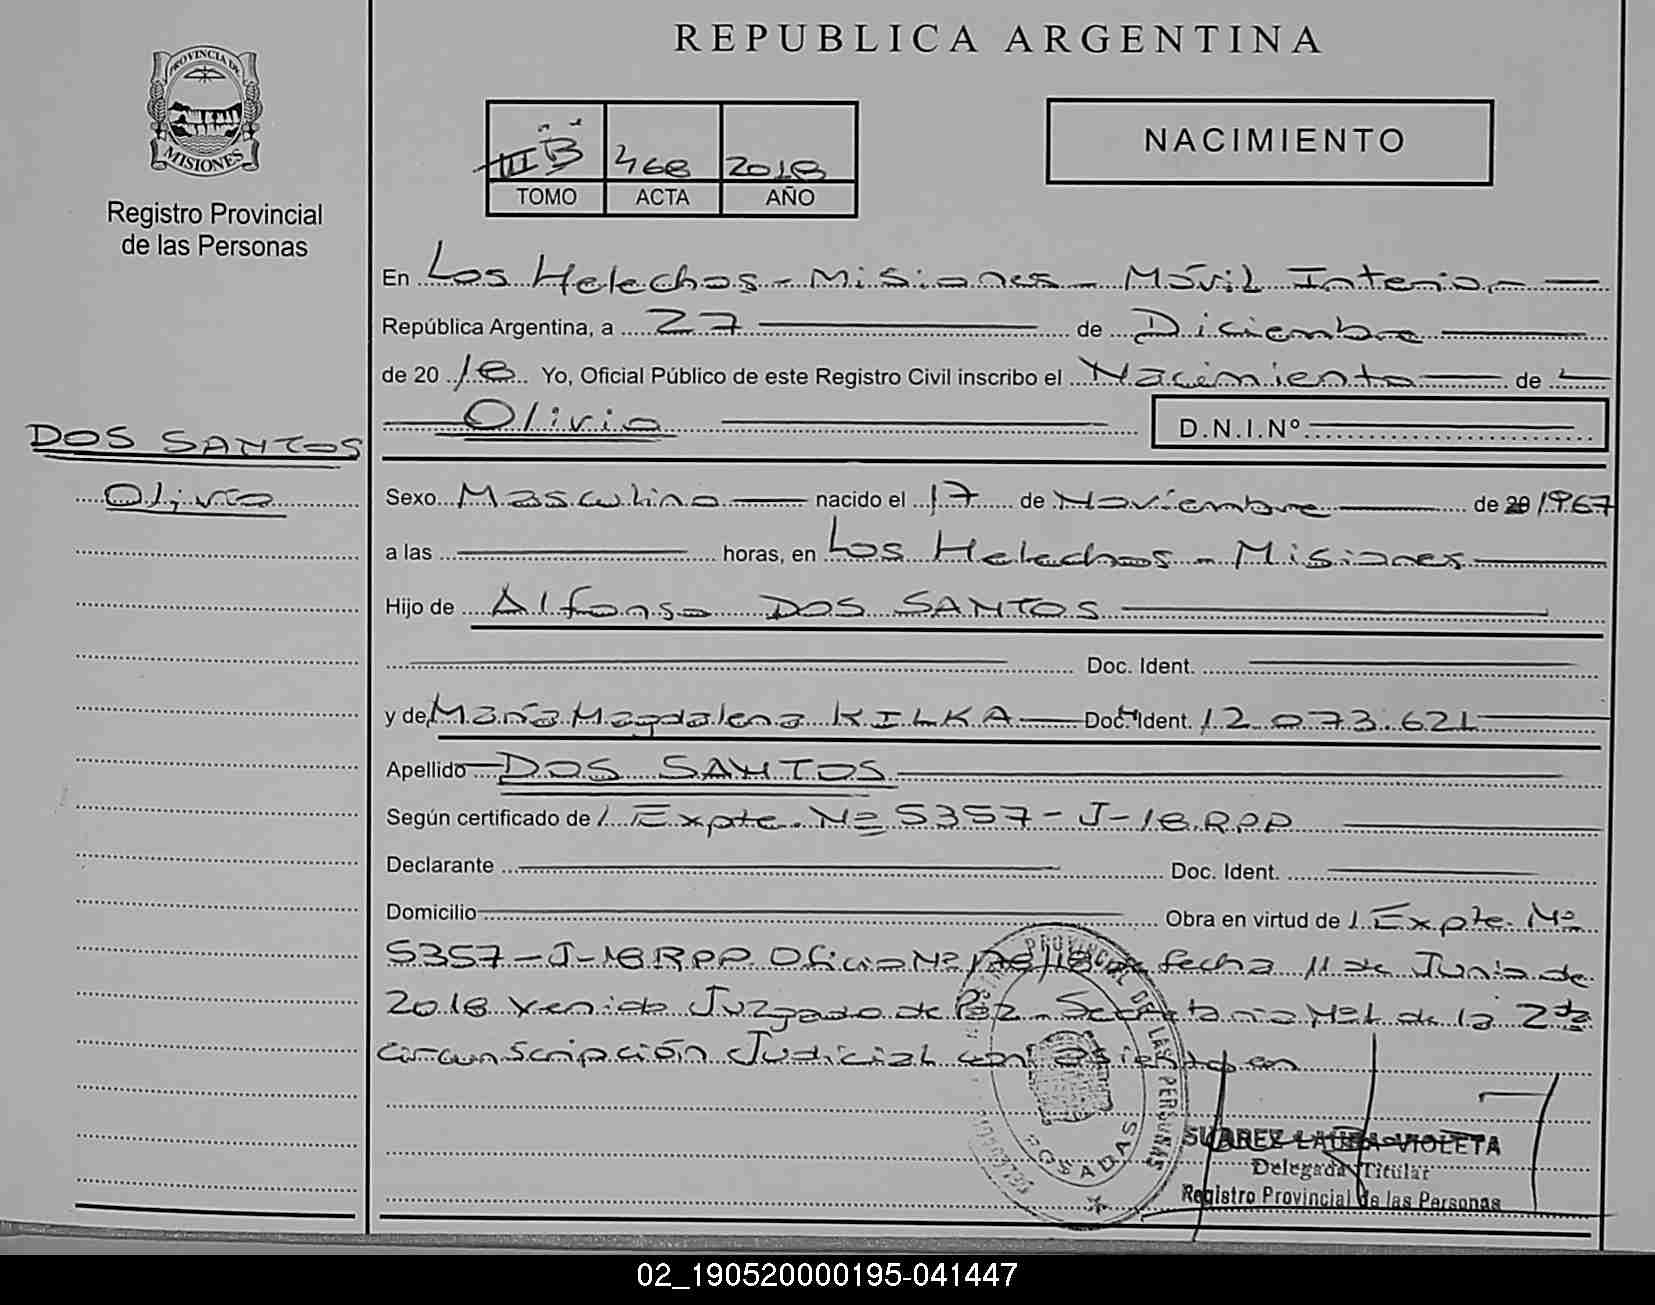 REPUBLICA ARGENTINA
PROVINCIA DE
MISIONES
Registro Provincial
de las Personas
III B 468 2018
TOMO ACTA AÑO
NACIMIENTO
En Los Helechos - Misiones - Móvil Interior
República Argentina, a 27 de Diciembre
de 20 18 Yo, Oficial Público de este Registro Civil inscribo el Nacimiento de
Olivio
D.N.I.Nº
DOS SANTOS
Olivio
Sexo Masculino nacido el 17 de Noviembre de 1967
a las horas, en Los Helechos - Misiones
Hijo de Alfonso DOS SANTOS
Doc. Ident.
y de María Magdalena KILKA Doc. Ident. 12.073.621
Apellido DOS SANTOS
Según certificado de Expte. Nº 5357-J-18.RPP
Declarante Doc. Ident.
Domicilio Obra en virtud de Expte. Nº
5357-J-18 RPP Oficio Nº fecha 11 de Junio de
2018 venido Juzgado de Paz - Secretaria Nº1 de la 2da
circunscripción Judicial con asiento en
PROVINCIAL DE LAS PERSONAS
POSADAS
SUAREZ LAURA VIOLETA
Delegada Titular
Registro Provincial de las Personas
02_190520000195-041447